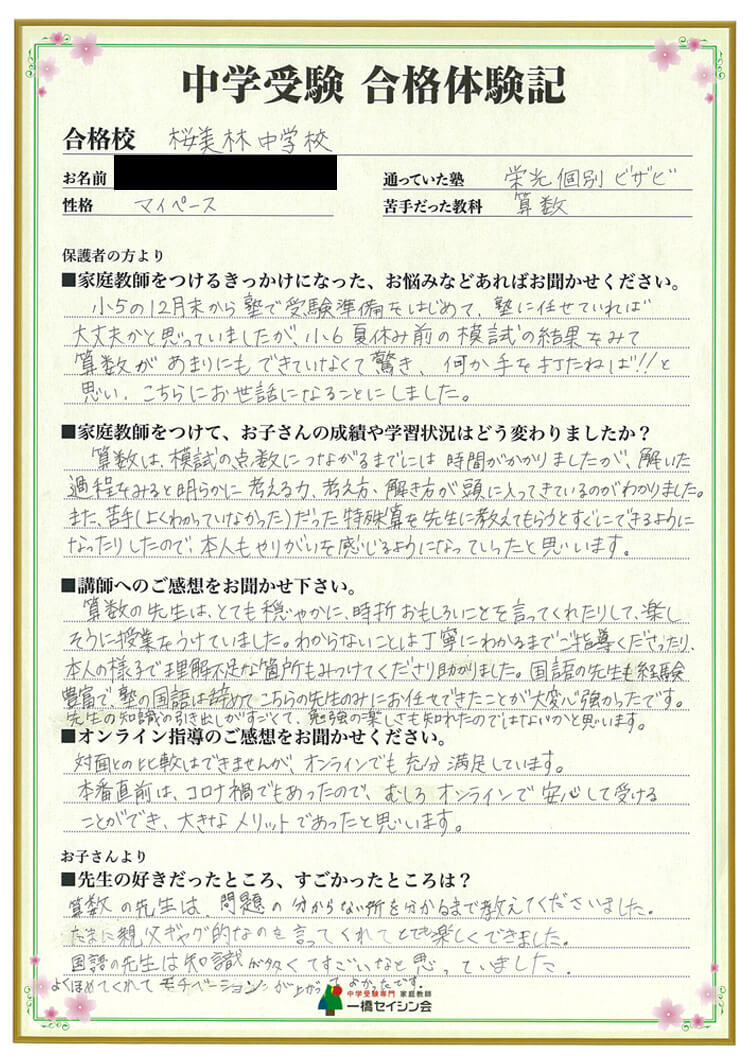 中学受験 合格体験記
合格校 桜美林中学校
お名前
通っていた塾 栄光個別ビザビ
性格 マイペース
苦手だった教科 算数
保護者の方より
■家庭教師をつけるきっかけになった、お悩みなどあればお聞かせください。
小5の12月末から塾で受験準備をはじめて、塾に任せていれば
大丈夫かと思っていましたが、小6夏休み前の模試の結果をみて
算数があまりにもできていなくて驚き、何か手を打たねば!!と
思い、こちらにお世話になることにしました。
■家庭教師をつけて、お子さんの成績や学習状況はどう変わりましたか？
算数は、模試の点数につながるまでには時間がかかりましたが、解いた
過程をみると明らかに考える力、考え方・解き方が頭に入ってきているのがわかりました。
また、苦手(よくわかっていなかった)だった特殊算を先生に教えてもらうとすぐにできるように
なったりしたので、本人もやりがいを感じるようになっていったと思います。
■講師へのご感想をお聞かせ下さい。
算数の先生は、とても穏やかに、時折おもしろいことを言ってくれたりして、楽し
そうに授業をうけていました。わからないことは丁寧にわかるまでご指導くださったり、
本人の様子で理解不足な箇所もみつけてくださり助かりました。国語の先生も経験
豊富で、塾の国語は辞めてこちらの先生のみにお任せできたことが大変心強かったです。
先生の知識の引き出しがすごくて、勉強の楽しさも知れたのではないかと思います。
■オンライン指導のご感想をお聞かせください。
対面との比較はできませんが、オンラインでも充分満足しています。
本番直前は、コロナ禍でもあったので、むしろオンラインで安心して受ける
ことができ、大きなメリットであったと思います。
お子さんより
■先生の好きだったところ、すごかったところは？
算数の先生は、問題の分からない所を分かるまで教えてくださいました。
たまに親父ギャグ的なのを言ってくれてとても楽しくできました。
国語の先生は知識が多くてすごいなと思っていました。
よくほめてくれてモチベーションが上がってよかったです。
中学受験専門 家庭教師
一橋セイシン会